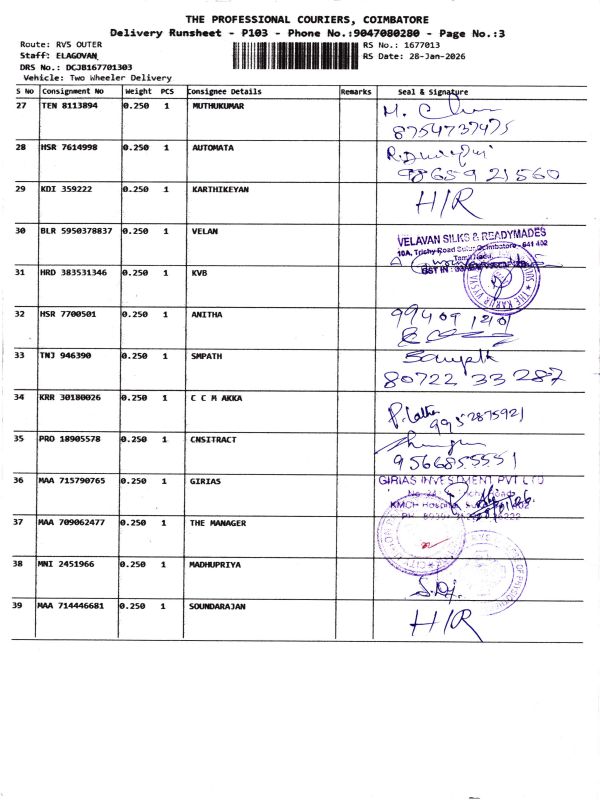 THE PROFESSIONAL COURIERS, COIMBATORE
Delivery Runsheet - P103 - Phone No.:9047080280 - Page No.:3
Route: RVS OUTER
RS No.: 1677013
Staff: ELAGOVAN
RS Date: 28-Jan-2026
DRS No.: DCJB167701303
Vehicle: Two Wheeler Delivery
S No Consignment No Weight PCS Consignee Details Remarks Seal & Signature
27 TEN 8113894 0.250 1 MUTHUKUMAR
8754737475
28 HSR 7614998 0.250 1 AUTOMATA
98659 21560
29 KDI 359222 0.250 1 KARTHIKEYAN H/R
30 BLR 5950378837 0.250 1 VELAN
VELAVAN SILKS & READYMADES
10A, Trichy Road Sulur, Coimbatore - 641 402
31 HRD 383531346 0.250 1 KVB
32 HSR 7700501 0.250 1 ANITHA
33 TNJ 946390 0.250 1 SMPATH Sampath
80722 33 287
34 KRR 30180026 0.250 1 C C M AKKA
P. Latha
9952875921
35 PRO 18905578 0.250 1 CNSITRACT
9566855551
36 MAA 715790765 0.250 1 GIRIAS
GIRIAS INVESTMENT PVT LTD
KMCH Hospital
37 MAA 709062477 0.250 1 THE MANAGER
38 MNI 2451966 0.250 1 MADHUPRIYA
39 MAA 714446681 0.250 1 SOUNDARAJAN H/R